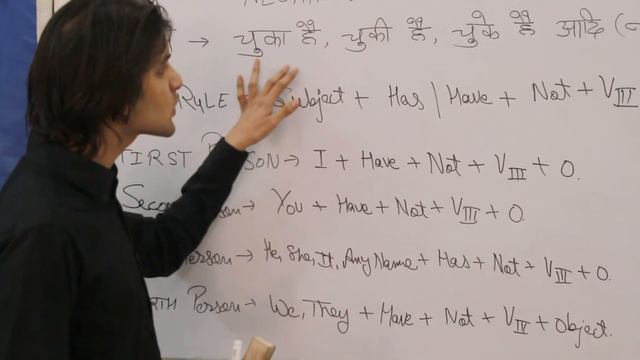 → चुका है, चुकी है, चुके है आदि
RULE Subject + Has | Have + Not + VIII
FIRST PERSON → I + Have + Not + VIII + O.
Second Person → You + Have + Not + VIII + O.
Person → He, She, It, Any Name + Has + Not + VIII + O.
Person → We, They + Have + Not + VIII + Object.